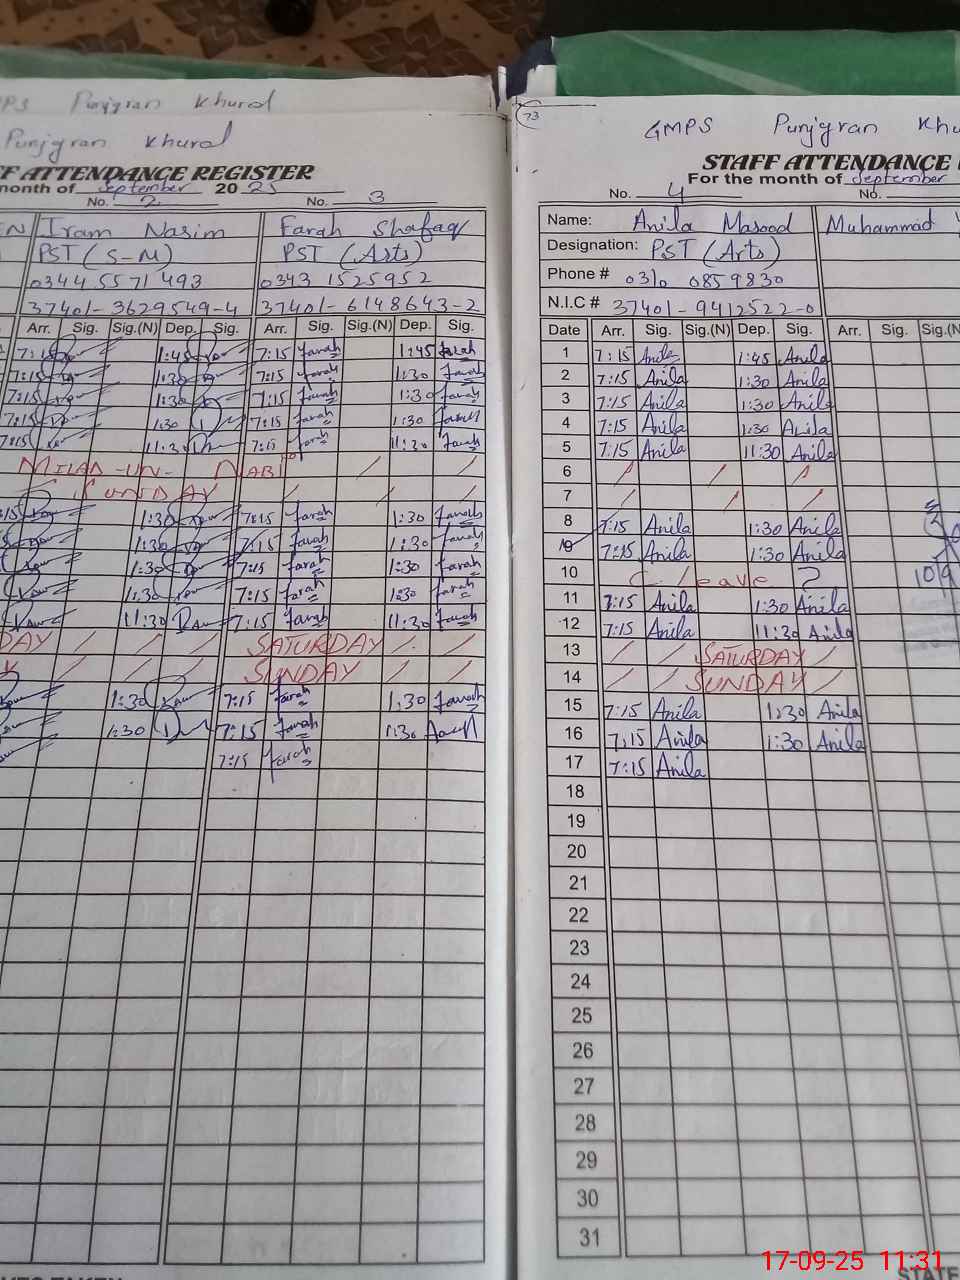 Punjgran Khural
Punjgran Khural
ATTENDANCE REGISTER
month of September 2025
No. 2 No. 3
Iram Nasim Farah Shafaq
PST (S-M) PST (Arts)
0344 5571493 0343 1525952
37401-3629549-4 37401-6148643-2
Arr. Sig. Sig.(N) Dep. Sig. Arr. Sig. Sig.(N) Dep. Sig.
1:45 7:15 Farah 1:45 Farah
7:15 1:30 7:15 Farah 1:30 Farah
7:15 1:30 7:15 Farah 1:30 Farah
7:15 1:30 7:15 Farah 1:30 Farah
7:15 11:30 7:15 Farah 11:30 Farah
MILAD-UN-NABI
SUNDAY
1:30 7:15 Farah 1:30 Farah
1:30 7:15 Farah 1:30 Farah
1:30 7:15 Farah 1:30 Farah
1:30 7:15 Farah 1:30 Farah
11:30 7:15 Farah 11:30 Farah
DAY SATURDAY
SUNDAY
1:30 7:15 Farah 1:30 Farah
1:30 7:15 Farah 1:30
7:15 Farah
73
GMPS Punjgran Khu
STAFF ATTENDANCE
For the month of September
No. 4 No.
Name: Anila Masood Muhammad
Designation: PST (Arts)
Phone # 0310 0859830
N.I.C # 37401-9412522-0
Date Arr. Sig. Sig.(N) Dep. Sig. Arr. Sig. Sig.(N
1 7:15 Anila 1:45 Anila
2 7:15 Anila 1:30 Anila
3 7:15 Anila 1:30 Anila
4 7:15 Anila 1:30 Anila
5 7:15 Anila 11:30 Anila
6
7
8 7:15 Anila 1:30 Anila
9 7:15 Anila 1:30 Anila
10 C leave ?
11 7:15 Anila 1:30 Anila
12 7:15 Anila 11:30 Anila
13 SATURDAY
14 SUNDAY
15 7:15 Anila 1:30 Anila
16 7:15 Anila 1:30 Anila
17 7:15 Anila
18
19
20
21
22
23
24
25
26
27
28
29
30
31
17-09-25 11:31